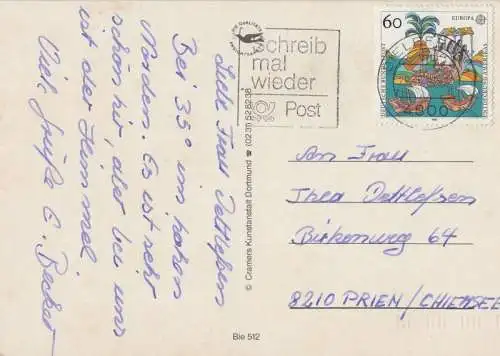 Liebe Frau Detlefsen
Bei 35° im hohen
Norden. Es ist sehr
schön hier, aber bei uns
ist der Himmel
Viele Grüße E. Becker
© Cramers Kunstanstalt Dortmund ☎ (0231) 528238
Bie 512
schreib
mal
wieder
Post
60
EUROPA
DEUTSCHE BUNDESPOST
An Frau
Thea Detlefsen
Birkenweg 64
8210 PRIEN/CHIEMSEE